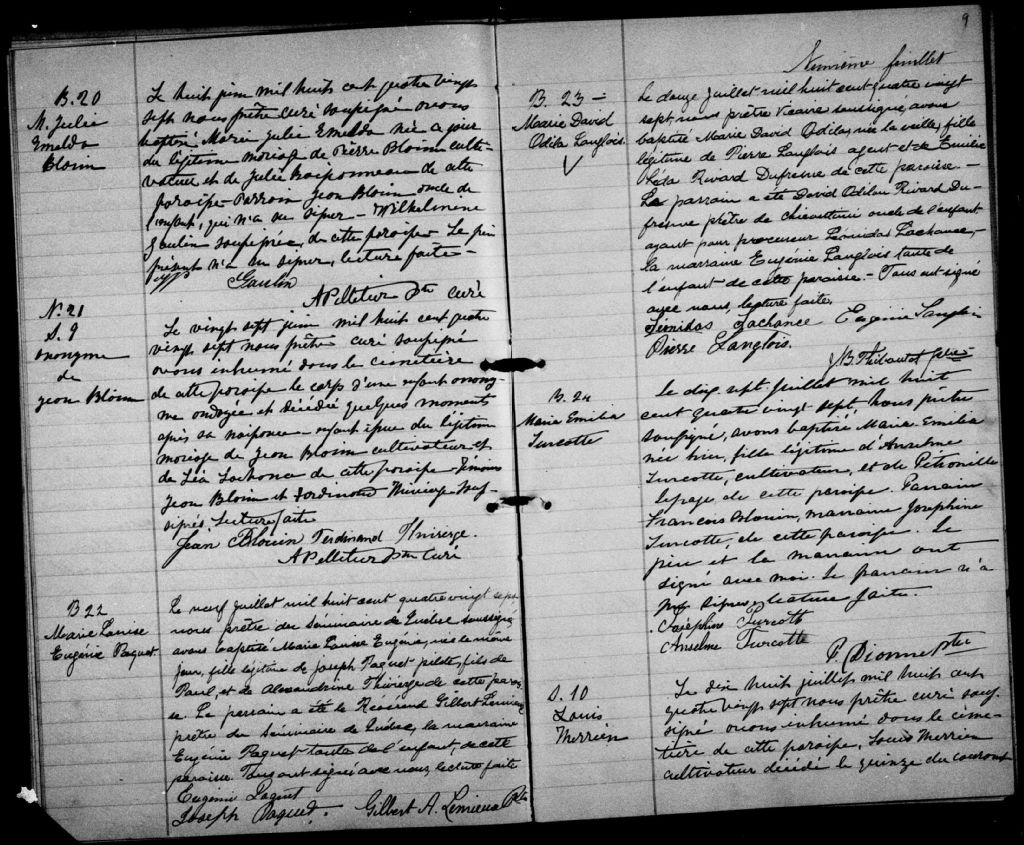 B. 20
M. Julie
Emelda
Blouin
Le huit juin mil huit cent quatre vingt
sept nous prêtre curé soussigné avons
baptisé Marie Julie Emelda née ce jour
du légitime mariage de Pierre Blouin culti-
vateur et de Julie de cette
paroisse - Parrain Jean Blouin oncle de
l'enfant, qui n'a su signer - Wilhelmine
Gaulin soussignée, de cette paroisse Le père
présent n'a su signer, lecture faite -
Gaulin
A Pelletier Ptre Curé
N. 21
S. 9
anonyme
de
Jean Blouin
Le vingt sept juin mil huit cent quatre
vingt sept nous prêtre curé soussigné
avons inhumé dans le cimetière
de cette paroisse le corps d'une enfant anony-
me ondoyée et décédée quelques moments
après sa naissance - enfant issue du légitime
mariage de Jean Blouin cultivateur et
de Léa Lachance de cette paroisse - Témoins
Jean Blouin et Ferdinand Thivierge sous-
signés. Lecture faite
Jean Blouin Ferdinand Thivierge.
A Pelletier Ptre Curé
B 22
Marie Louise
Eugénie Paquet
Le neuf juillet mil huit cent quatre vingt sept
nous prêtre du Séminaire de Québec soussigné
avons baptisé Marie Louise Eugénie, née le même
jour, fille légitime de Joseph Paquet pilote, fils de
Paul, et de Alexandrine Thivierge de cette parois-
se. Le parrain a été le Révérend Gilbert Lemieux
prêtre du Séminaire de Québec, la marraine
Eugénie Paquet tante de l'enfant, de cette
paroisse. Tous ont signé avec nous, lecture faite
Eugénie Paquet
Joseph Paquet. Gilbert A. Lemieux Ptre
9
Neuvième feuillet
B. 23 -
Marie David
Odila Langlois.
Le douze juillet mil huit cent quatre vingt
sept, nous prêtre Vicaire soussigné, avons
baptisé Marie David Odila, née la veille, fille
légitime de Pierre Langlois agent et de Emilie
Léda Rivard Dufresne de cette paroisse. -
Le parrain a été David Odilon Rivard Du-
fresne prêtre de Chicoutimi oncle de l'enfant
ayant pour procureur Léonidas Lachance, -
la marraine Eugénie Langlois tante de
l'enfant de cette paroisse. - Tous ont signé
avec nous, lecture faite.
Léonidas Lachance Eugénie Langlois
Pierre Langlois.
J B. Thibautot
B. 24
Marie Emilia
Turcotte
Le dix sept juillet mil huit
cent quatre vingt sept, nous prêtre
soussigné, avons baptisé Marie Emilia
née hier, fille légitime d'Anselme
Turcotte, cultivateur, et de Pétronille
Lepage de cette paroisse. Parrain
François Blouin, marraine Joséphine
Turcotte, de cette paroisse. Le
père et la marraine ont
signé avec moi. Le parrain n'a
pas signé, lecture faite.
Joséphine Turcotte
Anselme Turcotte
P. Dionne Ptre
S. 10
Louis
Merrien
Le dix huit juillet mil huit cent
quatre vingt sept nous prêtre curé sous-
signé avons inhumé dans le cime-
tière de cette paroisse, Louis Merrien
cultivateur décédé le quinze du courant